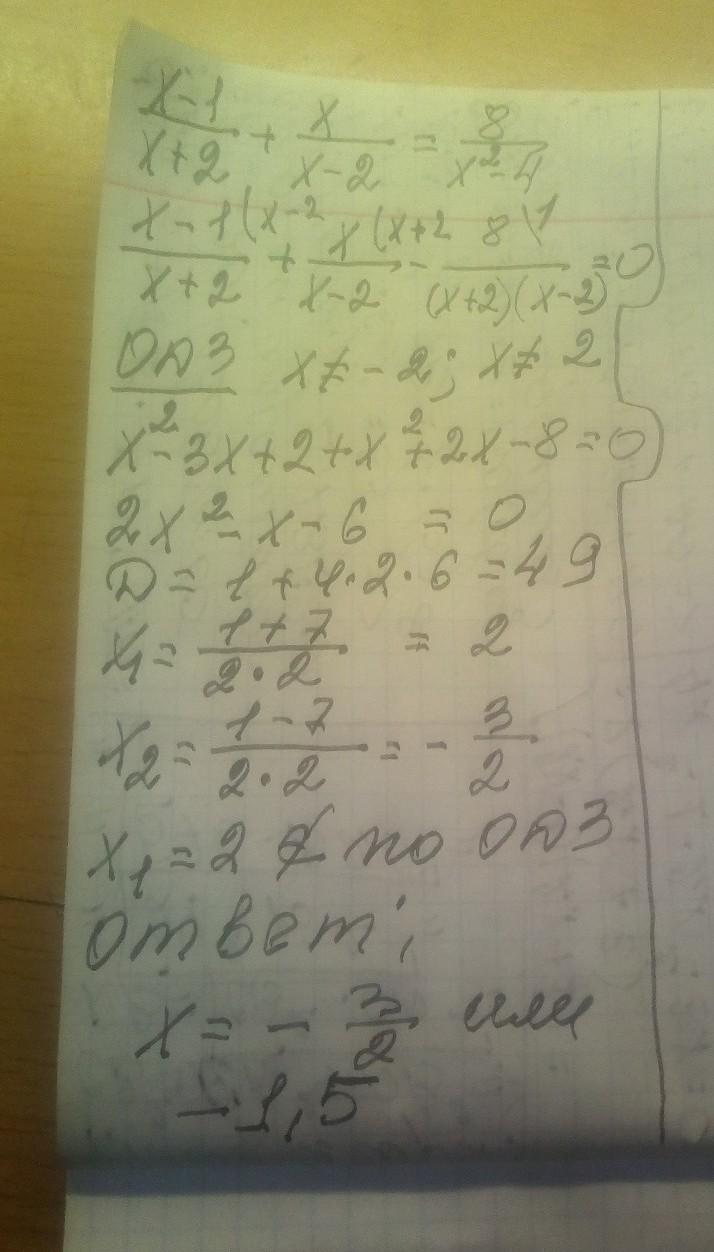 x-1/x+2 + x/x-2 = 8/x²-4
x-1(x-2/x+2 + x(x+2/x-2 - 8\1/(x+2)(x-2) =0
ОДЗ x≠-2; x≠2
x²-3x+2+x²+2x-8=0
2x²-x-6 = 0
D = 1+4·2·6 =49
x₁= 1+7/2·2 = 2
x₂= 1-7/2·2 = - 3/2
x₁=2 ∉ по ОДЗ
ответ:
x= - 3/2 или
-1,5